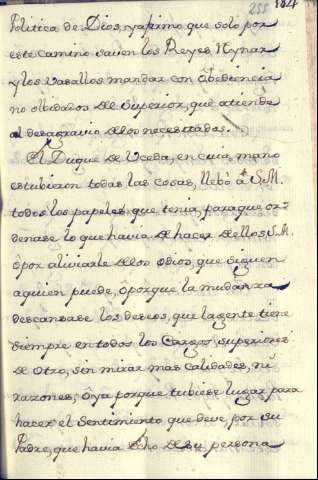 255 184
Politica de Dios, y afirmo que solo por
este camino saven los Reyes Reynar
y los Vasallos mandar con Obediencia
no olbidados del Superior, que atiende
al desagravio de los necesitados.
El Duque de Uceda, en cuia mano
estubieron todas las cosas, llebò â S.M.
todos los papeles que tenia, para que or=
denase lo que havia de hacer de ellos, S.M.
ò por aliviarle de los odios, que siguen
a quien puede, ò porque la mudanza
descansase los deseos, que la gente tiene
siempre en todos los Cargos, superiores
de otro, sin mirar mas calidades, ni
razones; ô ya porque tubiese lugar para
hacer el Sentimiento que deve, por su
Padre, que havia dho de su persona